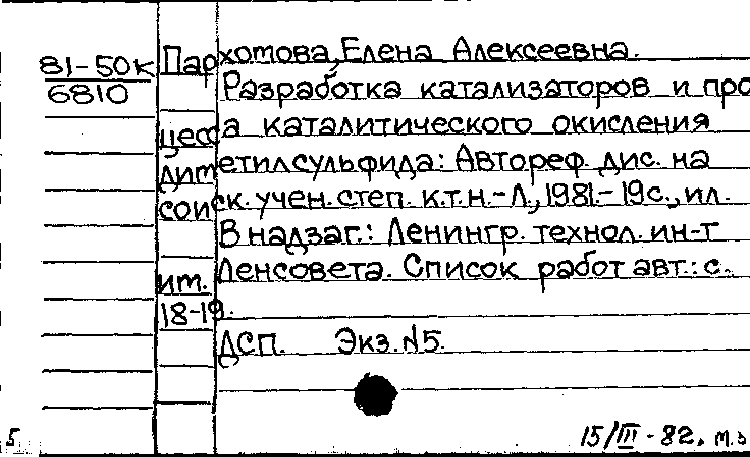 81-50к
6810
Пархотова, Елена Алексеевна.
Разработка катализаторов и про
цесса каталитического окисления
диметилсульфида: Автореф. дис. на
соиск. учен. степ. к.т.н. - Л., 1981. - 19 с., ил.
В надзаг.: Ленингр. технол. ин-т
им. Ленсовета. Список работ авт.: с.
18-19.
ДСП. Экз. №5.
5.
15/III - 82.